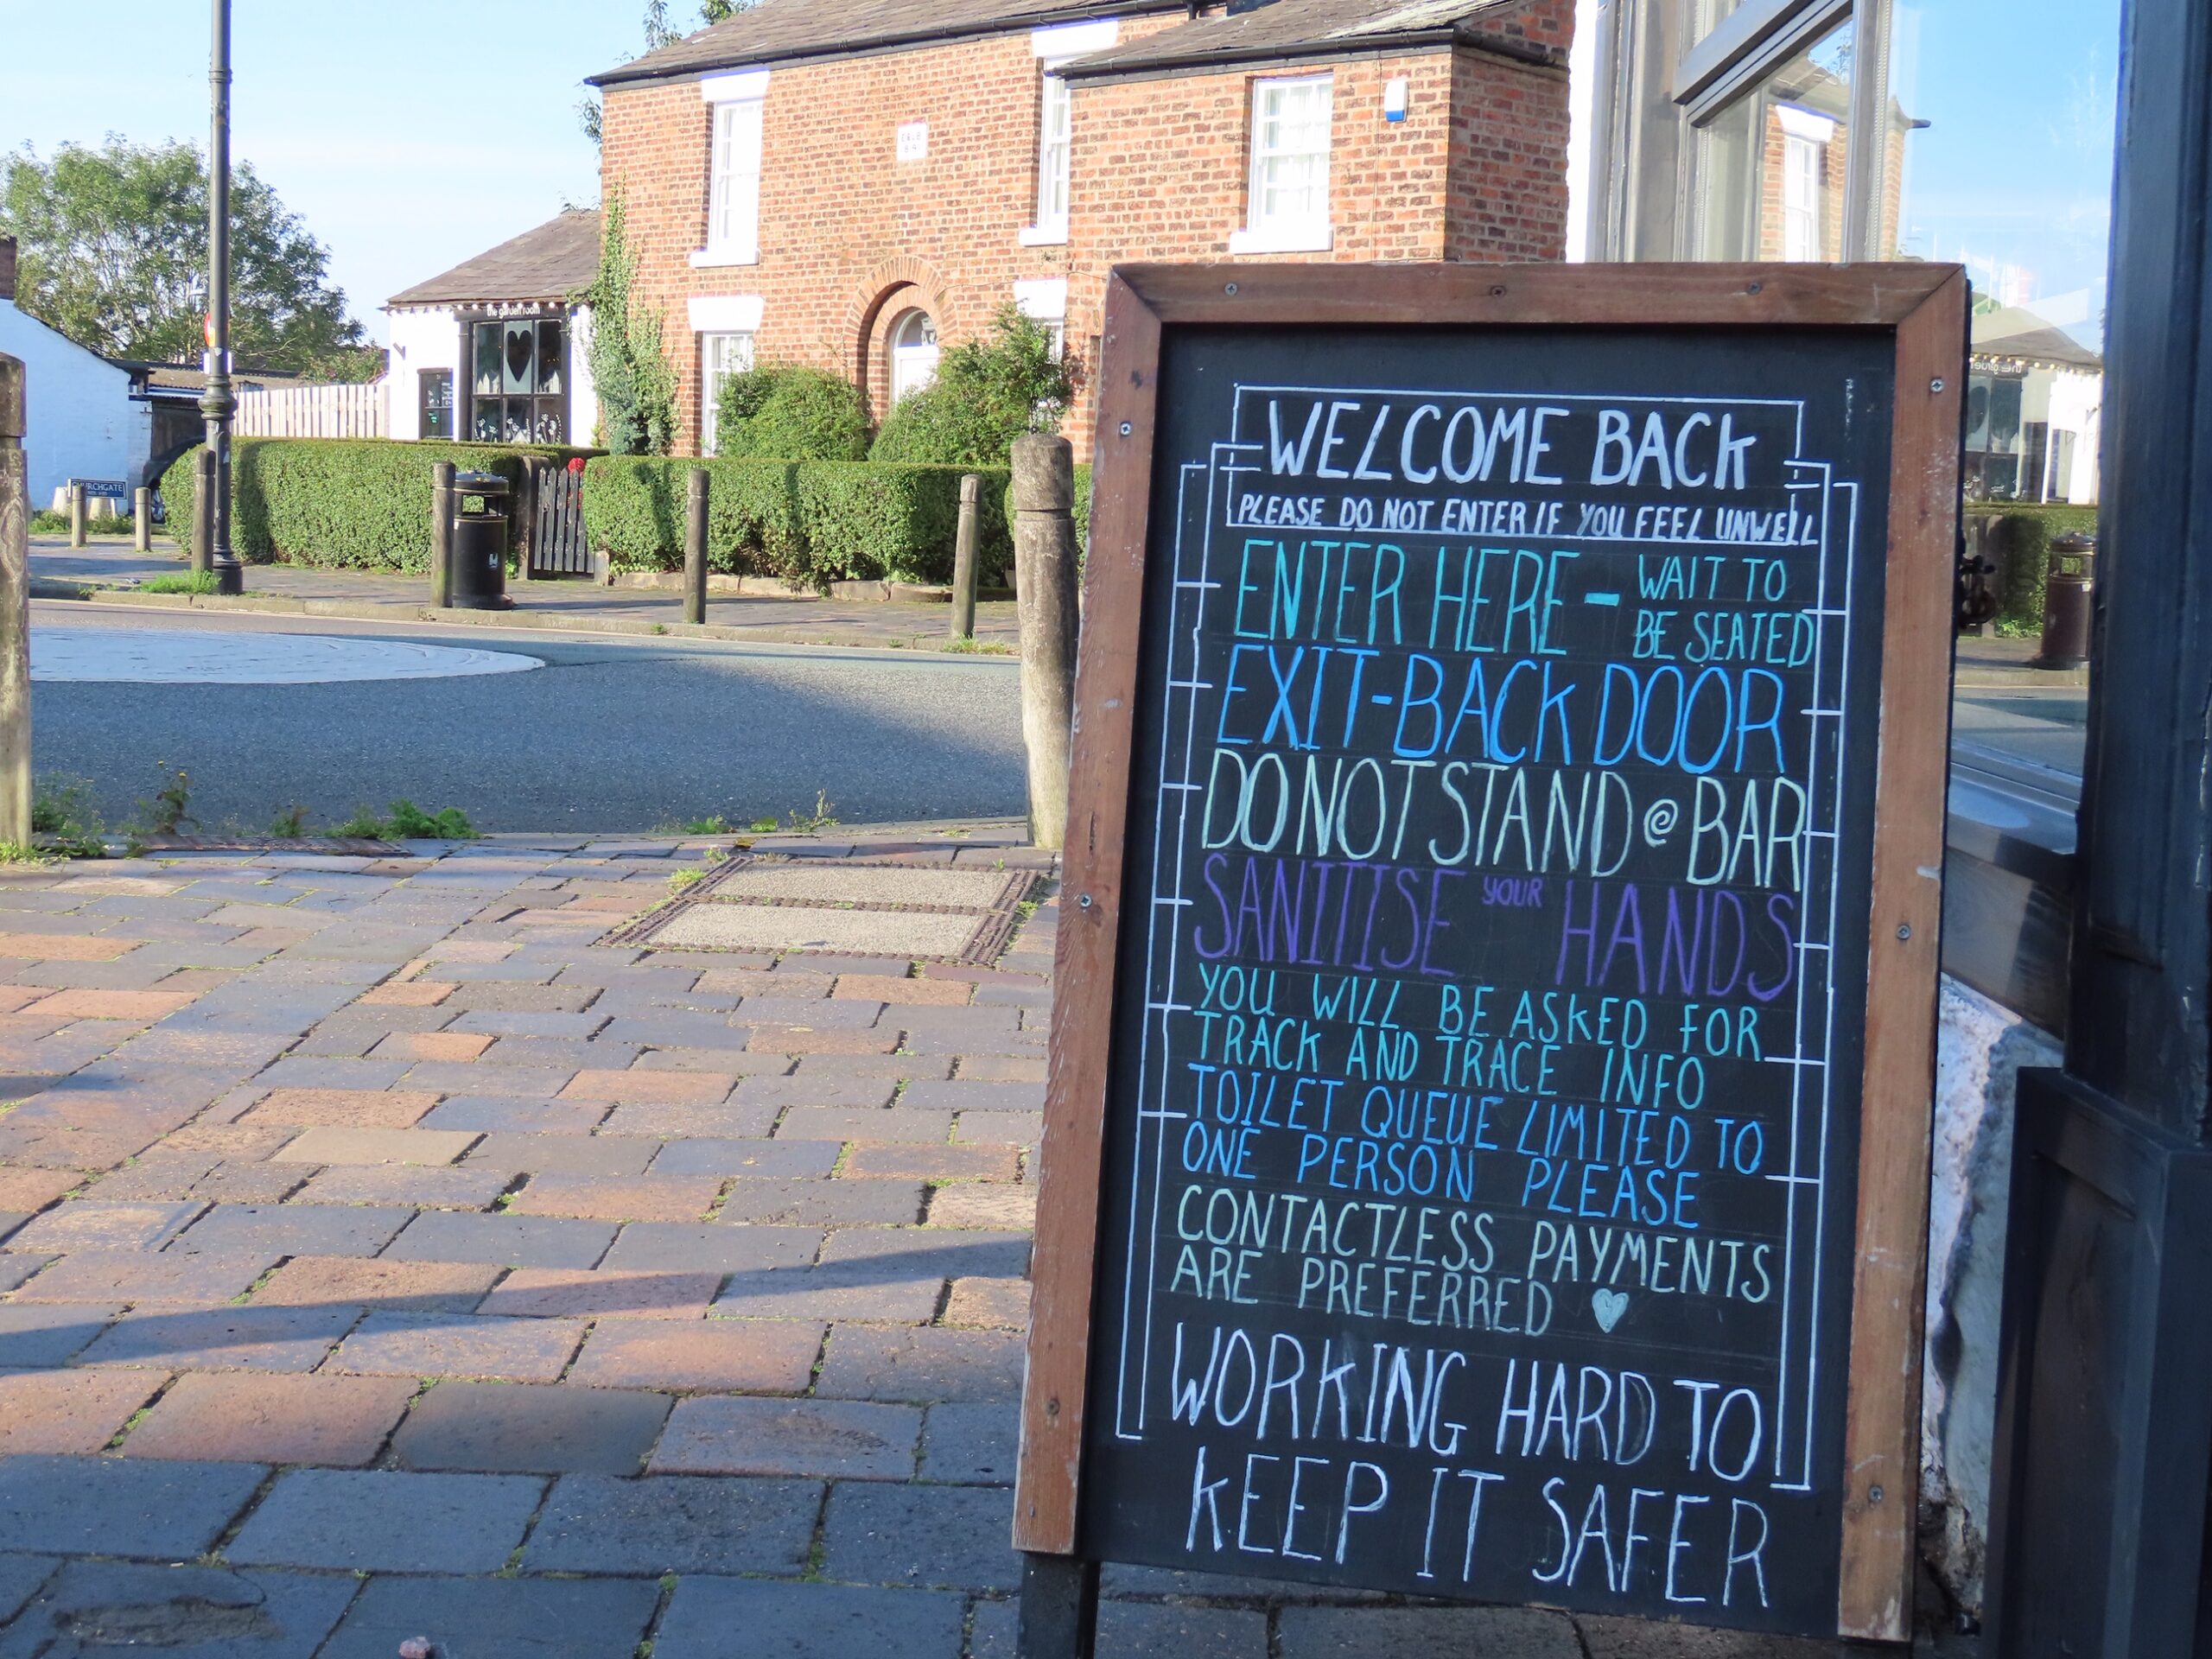 WELCOME BACK
PLEASE DO NOT ENTER IF YOU FEEL UNWELL
ENTER HERE - WAIT TO
BE SEATED
EXIT - BACK DOOR
DO NOT STAND @ BAR
SANITISE YOUR HANDS
YOU WILL BE ASKED FOR
TRACK AND TRACE INFO
TOILET QUEUE LIMITED TO
ONE PERSON PLEASE
CONTACTLESS PAYMENTS
ARE PREFERRED
WORKING HARD TO
KEEP IT SAFER
the garden room
CHURCHGATE